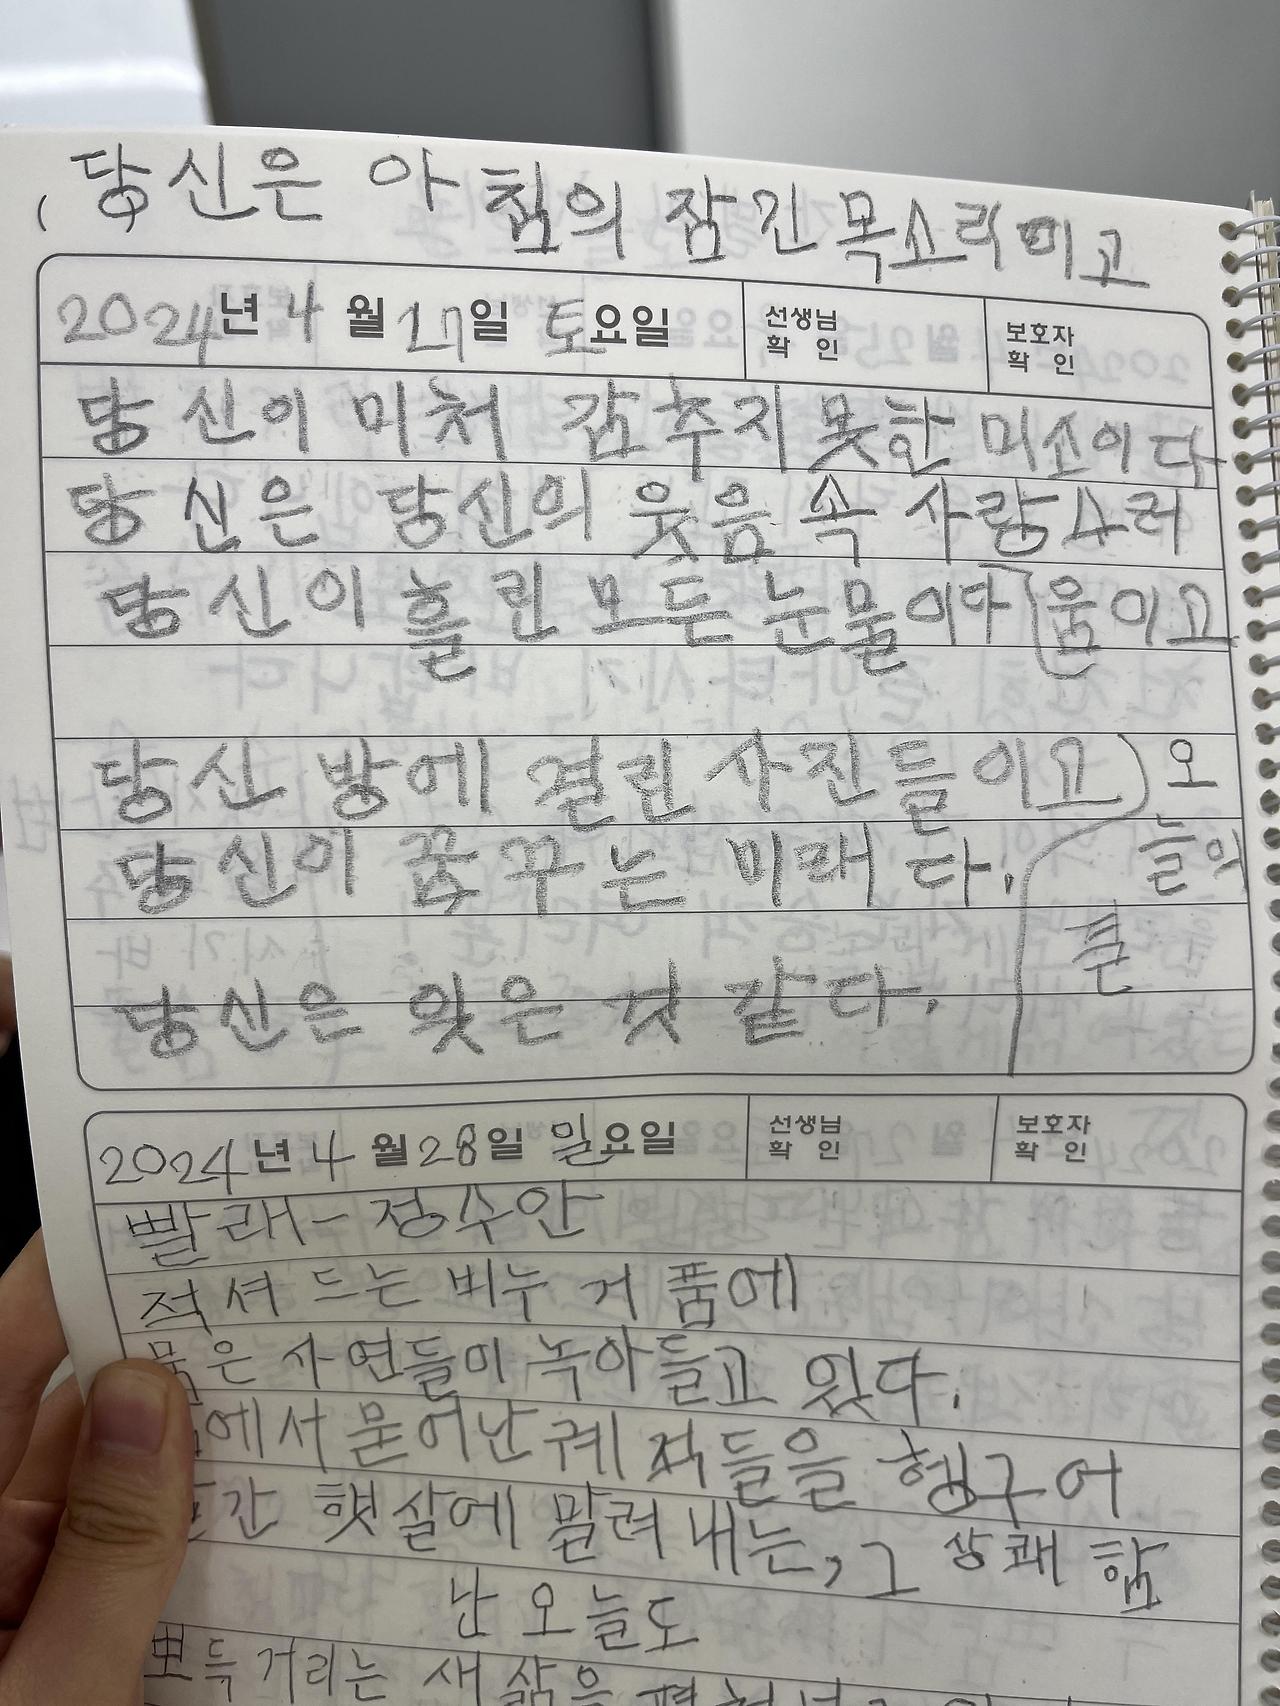 당신은 아침의 잠긴 목소리이고
2024년 4월 27일 토요일 선생님 확인 보호자 확인
당신이 미처 감추지 못한 미소이다
당신은 당신의 웃음 속 사랑스러
당신이 흘린 모든 눈물이다 움이고
당신 방에 걸린 사진들이고 오
당신이 꿈꾸는 미래다. 늘의
큰
당신은 잊은 것 같다.
2024년 4월 28일 일요일 선생님 확인 보호자 확인
빨래 - 정수안
적셔 드는 비누 거품에
묵은 사연들이 녹아들고 있다.
에서 묻어난 궤적들을 헹구어
햇살에 말려 내는, 그 상쾌함
난 오늘도
뽀득거리는 새 삶을